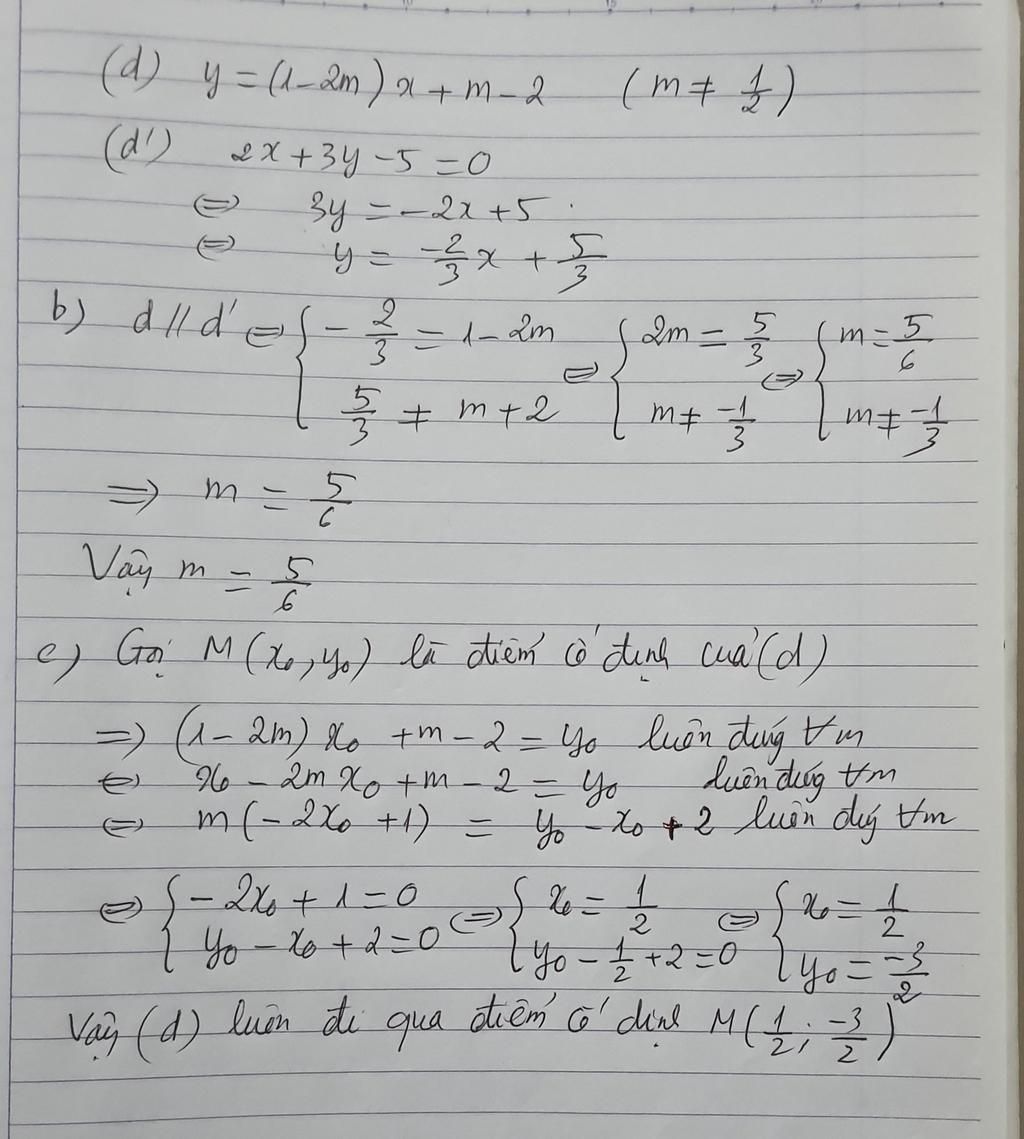 (d) y = (1-2m)x + m - 2 (m ≠ 1/2)
(d') 2x + 3y - 5 = 0
⇔ 3y = -2x + 5
⇔ y = -2/3 x + 5/3
b) d // d' ⇔ { -2/3 = 1 - 2m ; 5/3 ≠ m + 2 ⇔ { 2m = 5/3 ; m ≠ -1/3 ⇔ { m = 5/6 ; m ≠ -1/3
⇒ m = 5/6
Vậy m = 5/6
c) Gọi M(x₀, y₀) là điểm cố định của (d)
⇒ (1-2m)x₀ + m - 2 = y₀ luôn đúng ∀m
⇔ x₀ - 2mx₀ + m - 2 = y₀ luôn đúng ∀m
⇔ m(-2x₀ + 1) = y₀ - x₀ + 2 luôn đúng ∀m
⇔ { -2x₀ + 1 = 0 ; y₀ - x₀ + 2 = 0 ⇔ { x₀ = 1/2 ; y₀ - 1/2 + 2 = 0 ⇔ { x₀ = 1/2 ; y₀ = -3/2
Vậy (d) luôn đi qua điểm cố định M(1/2; -3/2)